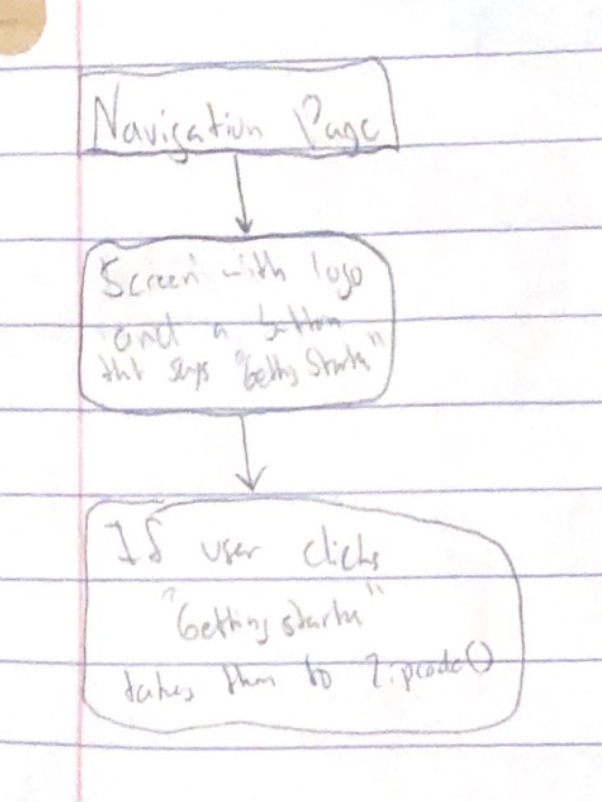 Navigation Page
Screen with logo
and a button
that says "Getting Started"
If user clicks
"Getting started"
takes them to Zipcode()